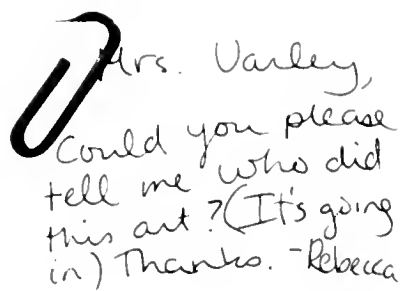 Mrs. Varley,
Could you please
tell me who did
this art? (It's going
in) Thanks. -Rebecca